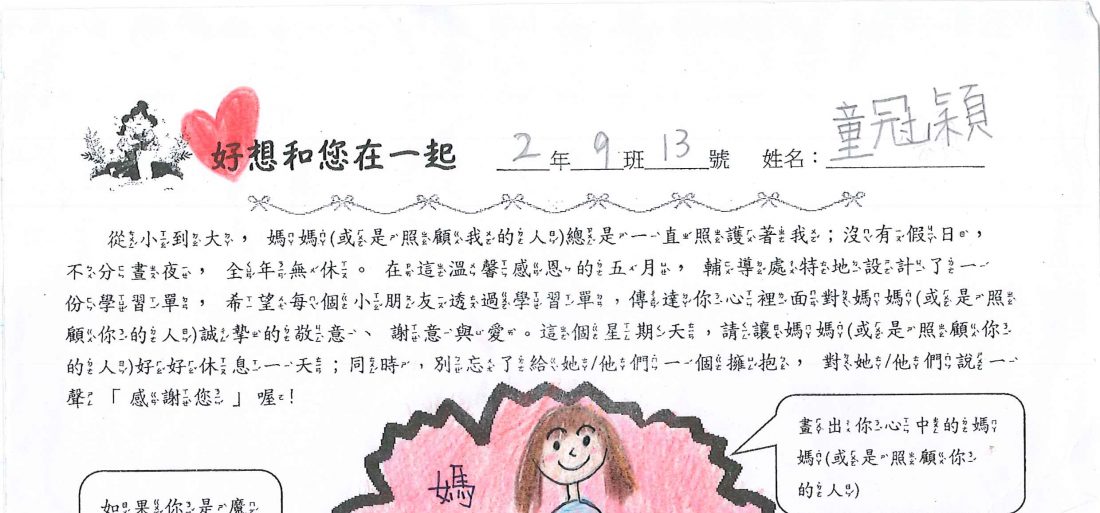 好想和您在一起 2年9班13號 姓名：童冠穎
從小到大，媽媽(或是照顧我的人)總是一直照護著我；沒有假日，
不分晝夜，全年無休。在這溫馨感恩的五月，輔導處特地設計了一
份學習單，希望每個小朋友透過學習單，傳達你心裡面對媽媽(或是照
顧你的人)誠摯的敬意、謝意與愛。這個星期天，請讓媽媽(或是照顧你
的人)好好休息一天；同時，別忘了給她/他們一個擁抱，對她/他們說一
聲「感謝您」喔！
畫出你心中的媽
媽(或是照顧你
的人)
媽
如果你是魔